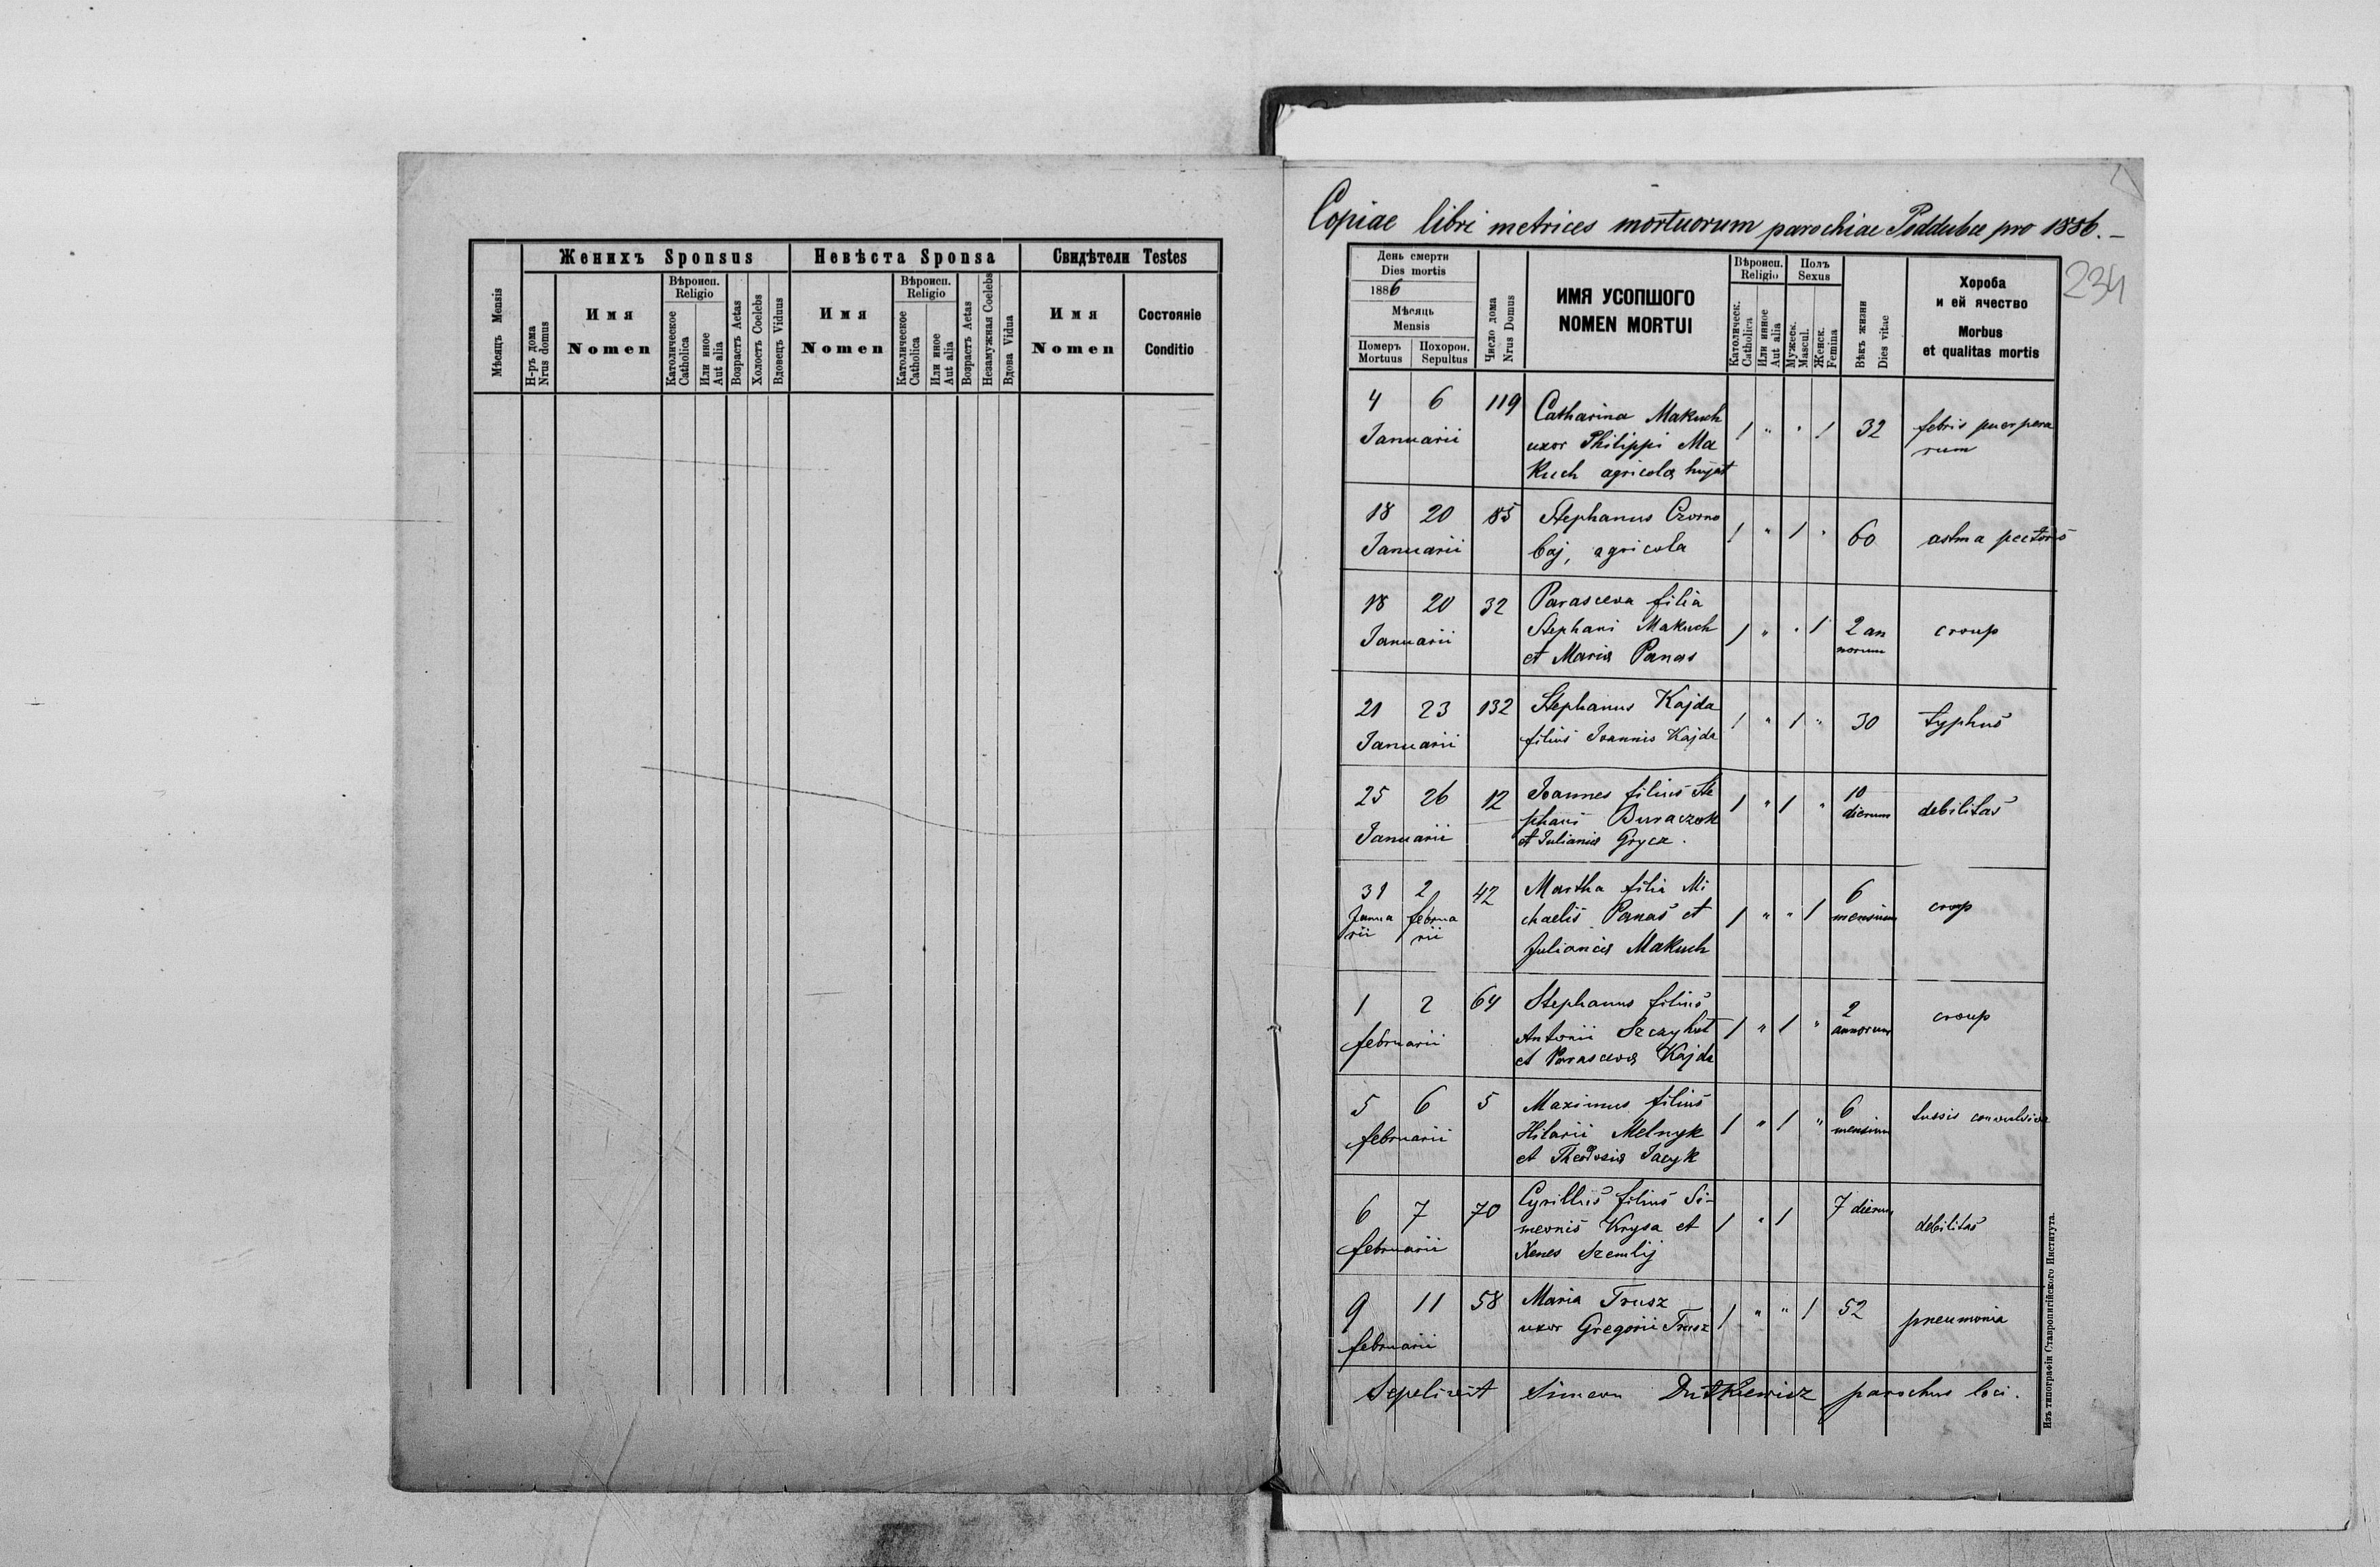 Женихъ Sponsus
Невѣста Sponsa
Свидѣтели Testes
Мѣсяцъ Mensis
Н-ръ дома
Nrus domus
Имя
Nomen
Вѣроисп.
Religio
Католическое
Catholica
Или иное
Aut alia
Возрастъ Aetas
Холостъ Coelebs
Вдовецъ Viduus
Имя
Nomen
Вѣроисп.
Religio
Католическое
Catholica
Или иное
Aut alia
Возрастъ Aetas
Незамужная Coelebs
Вдова Vidua
Имя
Nomen
Состояніе
Conditio
Copiae libri metrices mortuorum parochiae Poddubce pro 1886.-
234
День смерти
Dies mortis
1886
Мѣсяць
Mensis
Померъ
Mortuus
Похорон.
Sepultus
Число дома
Nrus Domus
ИМЯ УСОПШОГО
NOMEN MORTUI
Вѣроисп.
Religio
Католическ.
Catholica
Или инное
Aut alia
Полъ
Sexus
Мужеск.
Mascul.
Женск.
Femina
Вѣкъ жизни
Dies vitae
Хороба
и ей ячество
Morbus
et qualitas mortis
4 6 119 Catharina Makuch
Januarii uxor Philippi Ma 1 " . 1 32 febris puerpera
kuch agricola hujat rum
18 20 85 Stephanus Czorno
Januarii baj, agricola 1 " 1 . 60 astma pectoris
18 20 32 Parasceva filia
Januarii Stephani Makuch 1 " . 1 2 an croup
et Mariæ Panas norum
21 23 132 Stephanus Kajda 1 " 1 " 30 typhus
Januarii filius Joannis Kajda
25 26 12 Joannes filius Ste 1 " 1 " 10 debilitas
phani Buraczok dierum
Januarii et Julianiæ Grycz.
31 2 42 Martha filia Mi 6
Janua februa chaelis Panas et 1 " " 1 mensium croup
rii rii Julianæ Makuch
1 2 64 Stephanus filius 2 croup
februarii Antonii Szczyhut 1 " 1 " annorum
et Parascevæ Kajda
5 6 5 Maximus filius 6 tussis convulsiva
februarii Hilarii Melnyk 1 " 1 " mensium
et Theodosiæ Jacyk
6 7 70 Cyrillus filius Si- 7 dierum
februarii meonis Krysa et 1 " 1 debilitas
Xenes Szemlij
9 11 58 Maria Trusz 1 " " 1 52 pneumonia
februarii uxor Gregorii Trusz
Sepelivit Simeon Dutkiewicz parochus loci.
Изъ типографіи Ставропигійского Института.